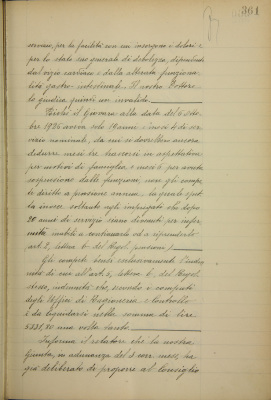 361
servizio, per la facilità con cui insorgono i dolori e
per lo stato suo generale di debolezza, dipendente
dal vizio cardiaco e dalla alterata funziona-
lità gastro-intestinale. Il nostro Dottore
lo giudica quindi un invalido.
Perciò il Giovara alla data del 6 otto-
bre 1926 aveva solo 19 anni e mesi 4 di ser-
vizio nominale, da cui si dovrebbero ancora
dedurre mesi tre trascorsi in aspettativa
per motivi di famiglia, e mesi per avuta
sospensione dalle funzioni, non gli compe-
te diritto a pensione annua, la quale spet-
ta invece soltanto agli impiegati che dopo
20 anni di servizio siano divenuti per infer-
mità inabili a continuarlo od a riprenderlo
art. 2, lettera b del Regol. pensioni).
Gli compete quindi esclusivamente l'inden-
nità di cui all'art. 5, lettera b, del Regol.
stesso, indennità che, secondo i computi
degli Uffici di Ragioneria e Controllo
è da liquidarsi nella somma di lire
5331,80 una volta tanto.
Informa il relatore che la nostra
Giunta, in adunanza del 3 corr. mese, ha
già deliberato di proporre al Consiglio